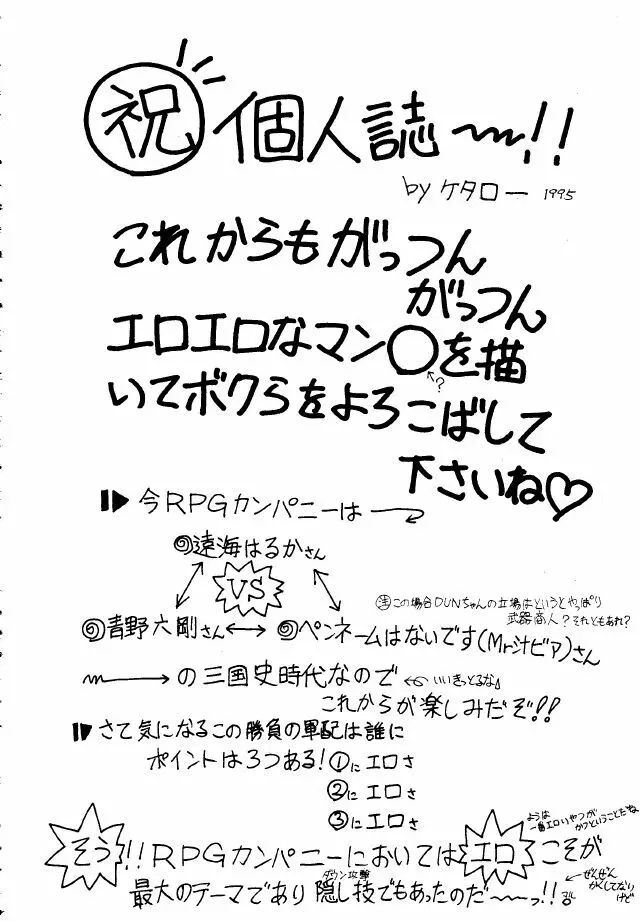 祝 個人誌〜!!
by ケタロー 1995
これからもがっつん
がっつん
エロエロなマン〇を描
?
いてボクらをよろこばして
下さいね♡
今RPGカンパニーは
遠海はるかさん
VS
注この場合DUNちゃんの立場はというとやっぱり
武器商人?それともあれ?
青野六剛さん↔ペンネームはないです(Mr汁ビア)さん
〜→の三国史時代なので
←いいきっとるな
これからが楽しみだぞ!!
さて気になるこの勝負の軍配は誰に
ポイントは3つある!①にエロさ
②にエロさ
③にエロさ
ようは
一番エロいやつが
かつということだね
そう!!RPGカンパニーにおいてはエロこそが
ダウン攻撃
最大のテーマであり隠し技でもあったのだ〜っ!!
←ぜんぜん
かくしてない
けど